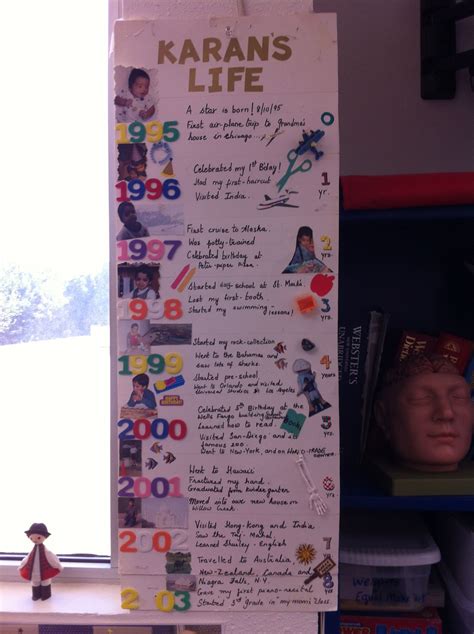 KARAN'S
LIFE
A star is born! 8/10/95
First air-plane trip to Grandma's
house in chicago...
1995
Celebrated my 1st B'day!
Had my first-haircut
Visited India.
1
yr.
1996
First cruise to Alaska.
Was potty-trained
Celebrated birthday at
2
yrs.
1997
Started day school at St. Mark's.
Lost my first-tooth
Started my swimming-
lessons!
3
yrs.
1998
Started my rock-collection
Went to the Bahamas and
saw lots of sharks.
Started pre-school
Went to Orlando and visited
Universal Studios in Los Angeles
4
years
1999
Celebrated 5th Birthday at the
Wells Fargo building
Learned how to read.
Visited San-Diego and
famous zoo.
Went to New-York, and
5
2000
Went to Hawaii
Fractured my hand.
Graduated from kindergarten
Moved into our new house on
Willow Creek
6
2001
Visited Hong-Kong and India
Saw the Taj-Mahal
Learned - English
7
2002
Travelled to Australia,
New-Zealand, Canada and
Niagra Falls, N.Y.
Gave my first piano-recital
Started 3rd grade in my mom's class.
8
yrs.
2003
WEBSTER'S